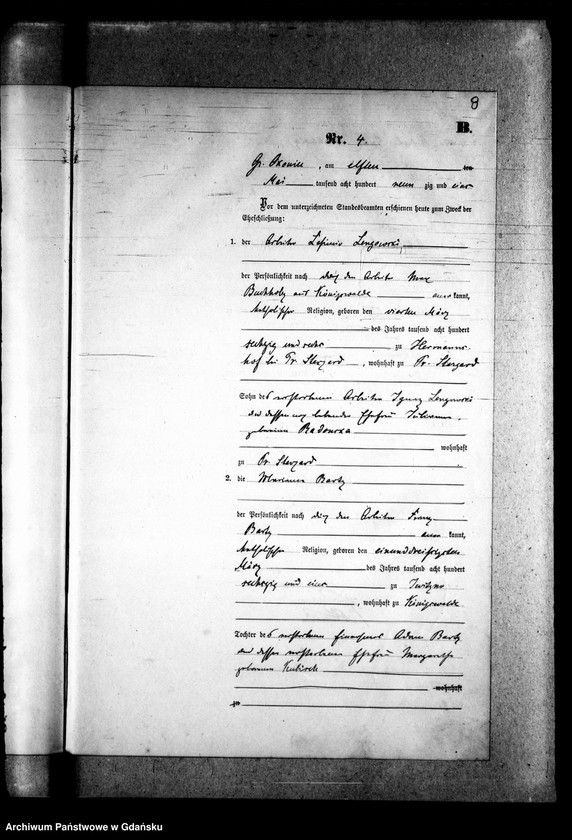 8
B.
Nr. 4.
Gr. Okonin, am elften ten
Mai tausend acht hundert neun zig und eins
Vor dem unterzeichneten Standesbeamten erschienen heute zum Zweck der
Eheschließung:
1. der Arbeiter Lengowski
der Persönlichkeit nach durch den Arbeiter Max
Buchholz aus Königswalde kannt,
katholischer Religion, geboren den vierten März
des Jahres tausend acht hundert
sechzig und sechs zu Hermanns-
hof bei Pr. Stargard, wohnhaft zu Pr. Stargard
Sohn des verstorbenen Arbeiters Ignatz Lengowski
und dessen noch lebender Ehefrau Juliana,
geborenen Radonska
wohnhaft
zu Pr. Stargard
2. die Marianna Bartz
der Persönlichkeit nach durch den Arbeiter Franz
Bartz kannt,
katholischer Religion, geboren den einunddreißigsten
März des Jahres tausend acht hundert
sechzig und eins zu
, wohnhaft zu Königswalde
Tochter des verstorbenen Einwohners Adam Bartz
und dessen verstorbenen Ehefrau Margarethe
geborenen
wohnhaft
zu
Archiwum Państwowe w Gdańsku